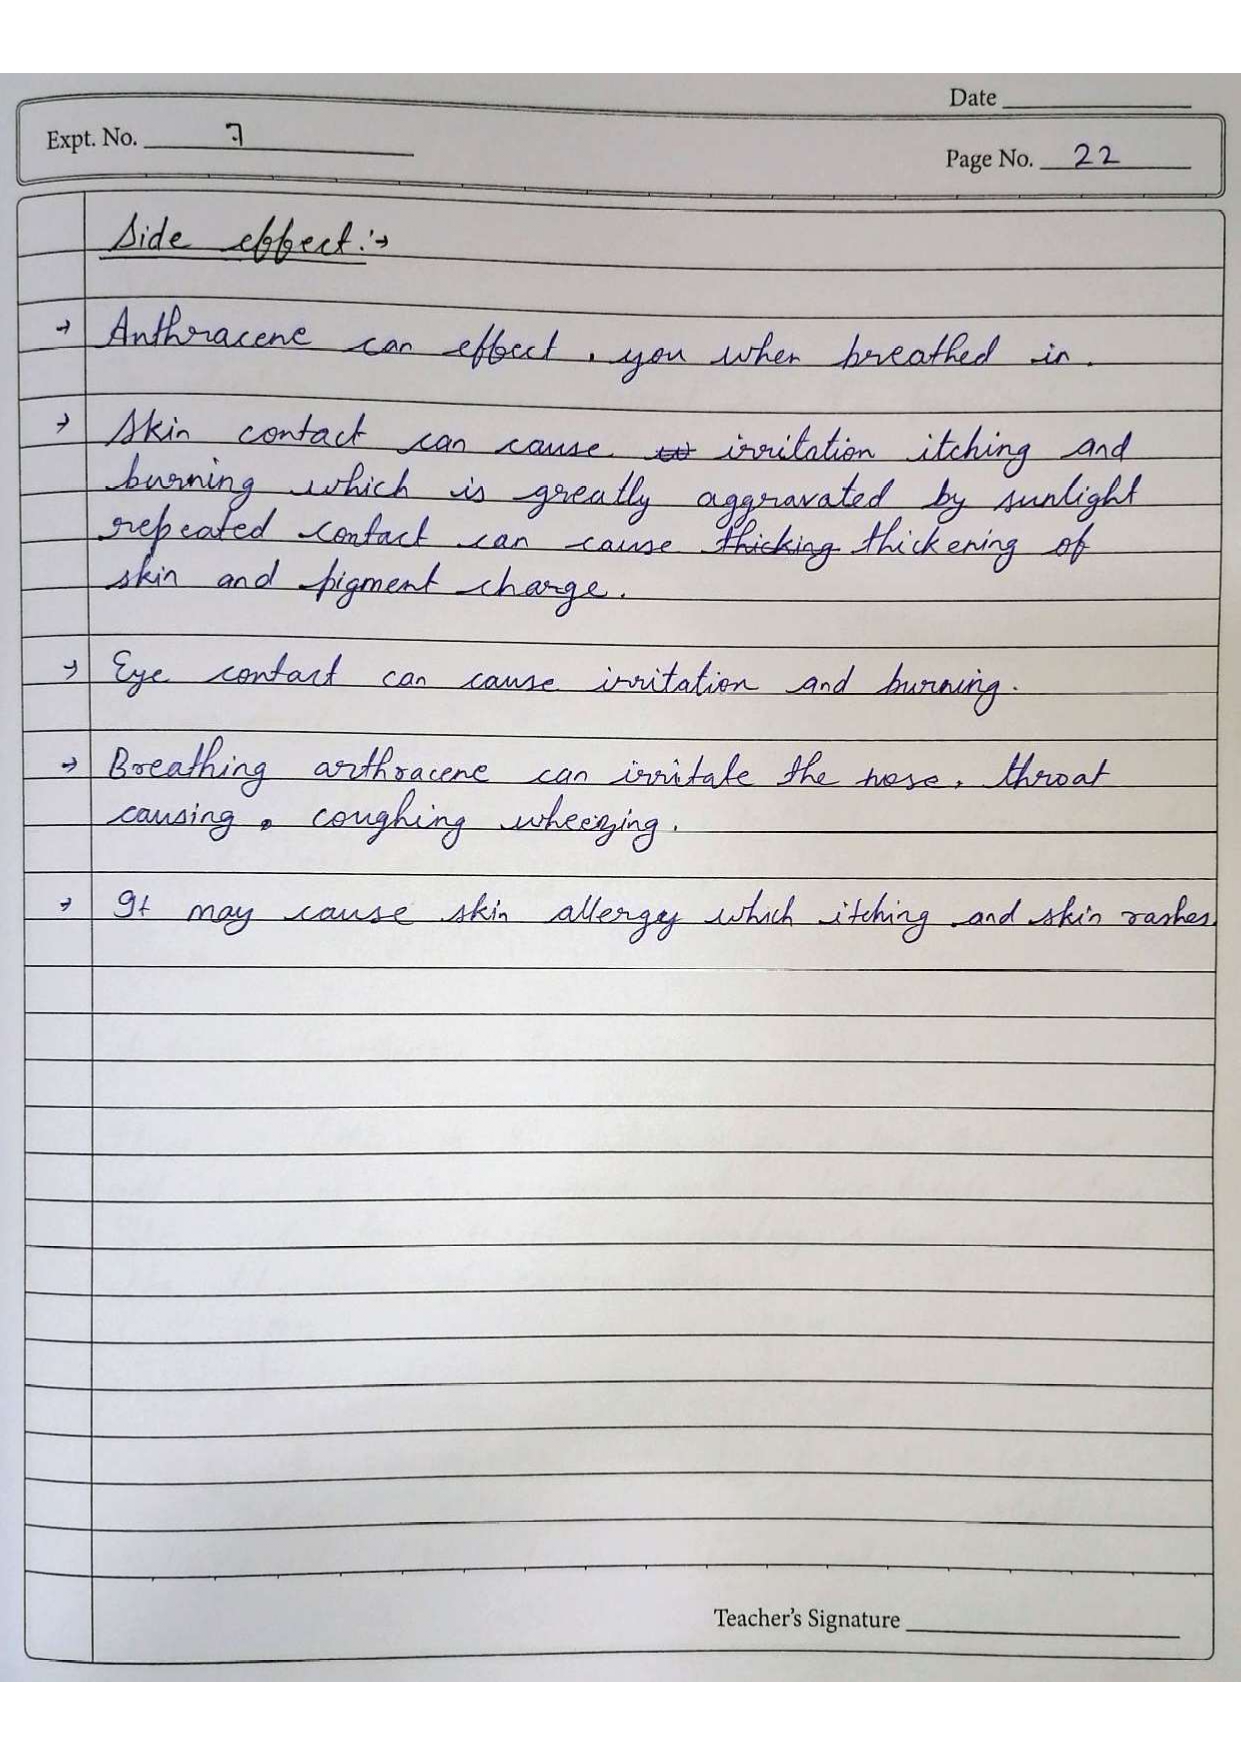 Date
Expt. No. 7
Page No. 22
Side effect:→
→ Anthracene can effect, you when breathed in.
→ Skin contact can cause irritation itching and
burning which is greatly aggravated by sunlight
repeated contact can cause thicking thickening of
skin and pigment charge.
→ Eye contact can cause irritation and burning.
→ Breathing arthracene can irritate the nose, throat
causing, coughing wheezing.
→ It may cause skin allergy which itching and skin rashes.
Teacher's Signature